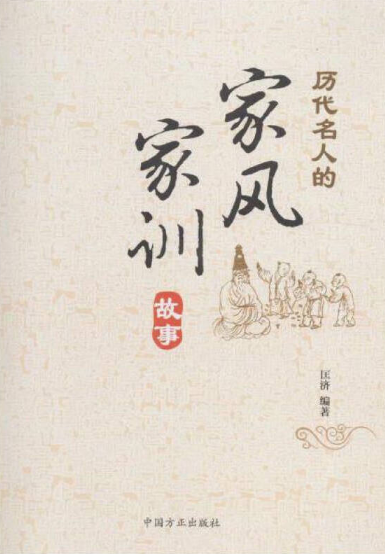 历代名人的
家风
家训
故事
匡济 编著
中国方正出版社